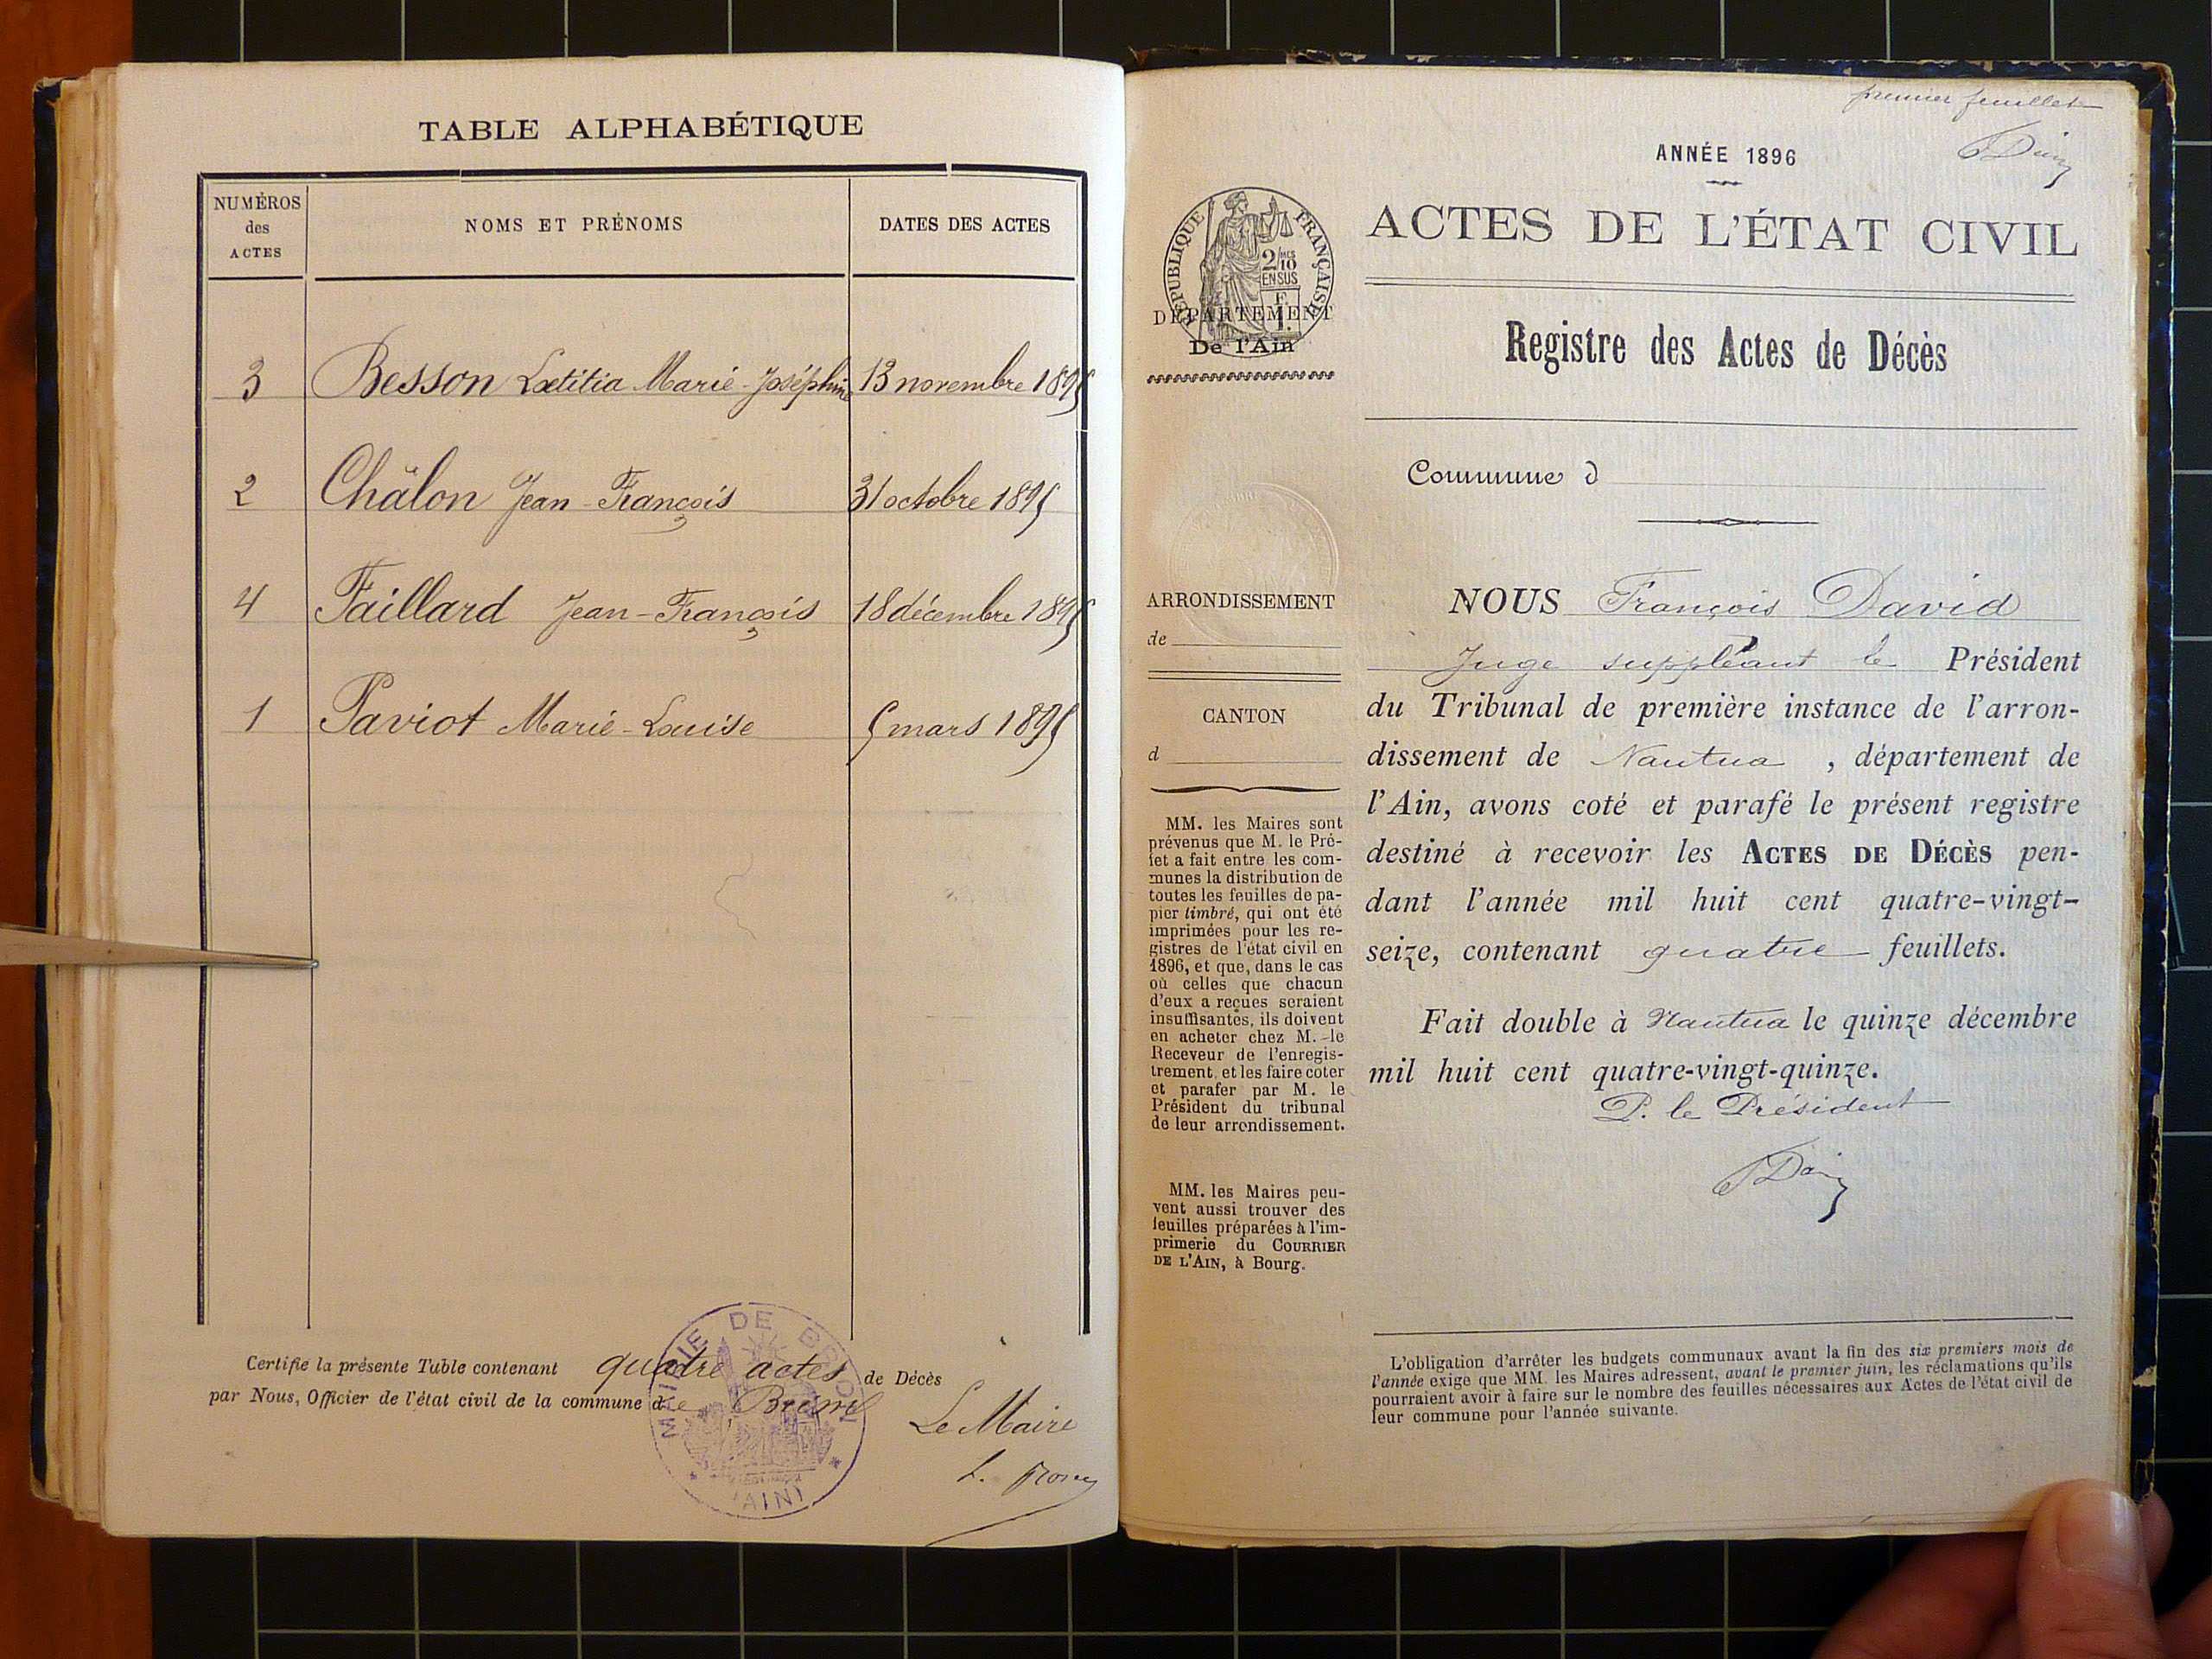 TABLE ALPHABÉTIQUE
NUMÉROS des ACTES
NOMS ET PRÉNOMS
DATES DES ACTES
3 Besson Lætitia Marie-Joséphine 13 novembre 1895
2 Châlon Jean-François 31 octobre 1895
4 Faillard Jean-François 18 décembre 1895
1 Paviot Marie-Louise 5 mars 1895
Certifie la présente Table contenant quatre actes de Décès
par Nous, Officier de l'état civil de la commune de
Le Maire
MAIRIE DE
(AIN)
premier feuillet
ANNÉE 1896
RÉPUBLIQUE FRANÇAISE
2/10
EN SUS
DÉPARTEMENT
De l'Ain
ACTES DE L'ÉTAT CIVIL
Registre des Actes de Décès
Commune d
ARRONDISSEMENT
de
CANTON
d
MM. les Maires sont
prévenus que M. le Pré-
fet a fait entre les com-
munes la distribution de
toutes les feuilles de pa-
pier timbré, qui ont été
imprimées pour les re-
gistres de l'état civil en
1896, et que, dans le cas
où celles que chacun
d'eux a reçues seraient
insuffisantes, ils doivent
en acheter chez M. le
Receveur de l'enregis-
trement, et les faire coter
et parafer par M. le
Président du tribunal
de leur arrondissement.
MM. les Maires peu-
vent aussi trouver des
feuilles préparées à l'im-
primerie du COURRIER
DE L'AIN, à Bourg.
NOUS François David
Juge suppléant le Président
du Tribunal de première instance de l'arron-
dissement de Nantua , département de
l'Ain, avons coté et parafé le présent registre
destiné à recevoir les ACTES DE DÉCÈS pen-
dant l'année mil huit cent quatre-vingt-
seize, contenant quatre feuillets.
Fait double à Nantua le quinze décembre
mil huit cent quatre-vingt-quinze.
P. le Président
L'obligation d'arrêter les budgets communaux avant la fin des six premiers mois de
l'année exige que MM. les Maires adressent, avant le premier juin, les réclamations qu'ils
pourraient avoir à faire sur le nombre des feuilles nécessaires aux Actes de l'état civil de
leur commune pour l'année suivante.